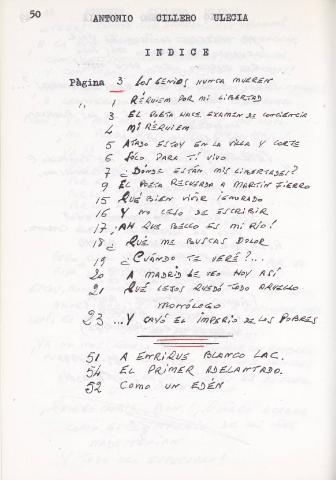 50
ANTONIO CILLERO ULECIA
INDICE
Pàgina 3 LOS GENIOS NUNCA MUEREN
" 1 RÉQUIEM POR MI LIBERTAD
3 EL POETA HACE EXAMEN DE CONCIENCIA
4 MI RÉQUIEM
5 ATADO ESTOY EN LA VILLA Y CORTE
6 SÓLO PARA TÍ VIVO
7 ¿DÓNDE ESTÁN MIS LIBERTADES?
9 EL POETA RECUERDA A MARTÍN FIERRO
15 QUÉ BIEN VIVIR IGNORADO
16 Y NO CESO DE ESCRIBIR
17 ¡AH QUE BELLO ES MI RÍO!
18 ¿ QUÉ ME BUSCAS DOLOR
19 ¿CUÁNDO TE VERÉ?...
20 A MADRID SE VEO HOY ASÍ
21 QUÉ LEJOS QUEDÓ TODO AQUELLO
MONÓLOGO
23 ...Y CAYÓ EL IMPERIO DE LOS POBRES
51 A ENRIQUE BLANCO LAC.
54 EL PRIMER ADELANTADO.
52 COMO UN EDÉN